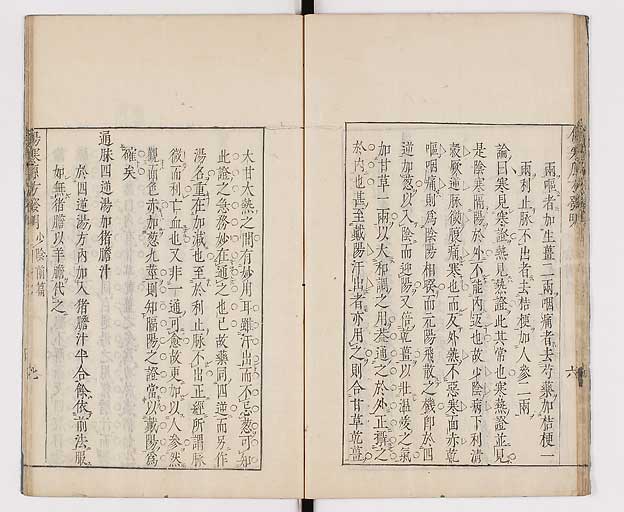 兩嘔者加生薑二兩咽痛者去芍藥加桔梗一
兩利止脉不出者去桔梗加人參二兩
論曰寒見寒證熱見熱證此其常也寒熱並見
是陰寒隔陽於外不能內返也故少陰病下利清
穀厥逆脉微腹痛寒也而反外熱不惡寒面赤乾
嘔咽痛則為陰陽相
而元陽飛散之機卽於四
逆加葱以入陰而迎陽又倍乾薑以壯溫煖之氣
加甘草一兩以大和調之用葢通之於外正
之
於內也甚至戴陽汗出者亦用之則合甘草乾薑
大甘大熱之間有妙用耳雖汗出而不忌葱可知
此證之急務妙在通之也已故藥同四逆而另作
湯名重在加減也至於利止脉不出正經所謂脉
微而利亡血也又非一通可愈故更加以人參然
觀面色赤加葱九莖則知隔陽之證當以戴陽為
確矣
通脉四逆湯加猪膽汁
於四逆湯方內加入猪膽汁半合餘依前法服
如無猪膽以羊膽代之
傷寒原方發明
少陰前篇